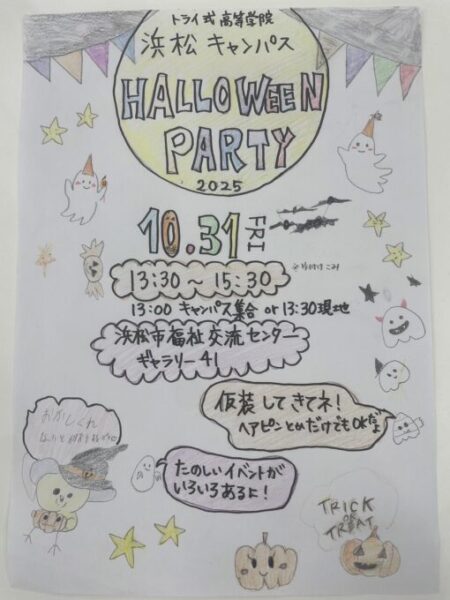 トライ式高等学院
浜松 キャンパス
HALLOWEEN
PARTY
2025
10.31 FRI
※片付けこみ
13:30 ~ 15:30
13:00 キャンパス集合 or 13:30現地
浜松市福祉交流センター
ギャラリー41
仮装してきてネ!
ヘアピンとめだけでもOKだよ
おかしくれ
たのしいイベントが
いろいろあるよ!
TRICK
OR
TREAT